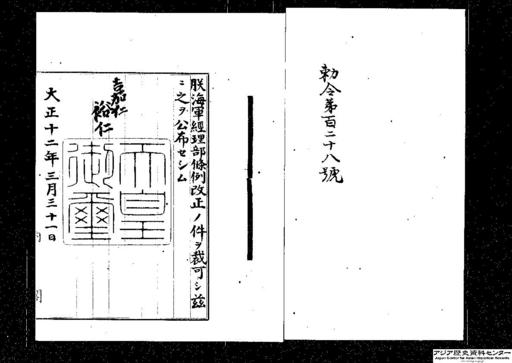 勅令第百二十八號
朕海軍經理部條例改正ノ件ヲ裁可シ茲
ニ之ヲ公布セシム
嘉仁
裕仁
天皇
御璽
大正十二年三月三十一日
アジア歴史資料センター
Japan Center for Asian Historical Records